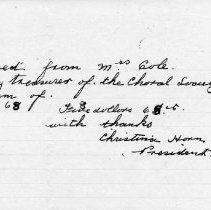 ed from Mrs Cole.
treasurer of the Choral Society
m of.
68 Five dollars 68 ct.
with thanks
Christina Horn
President.